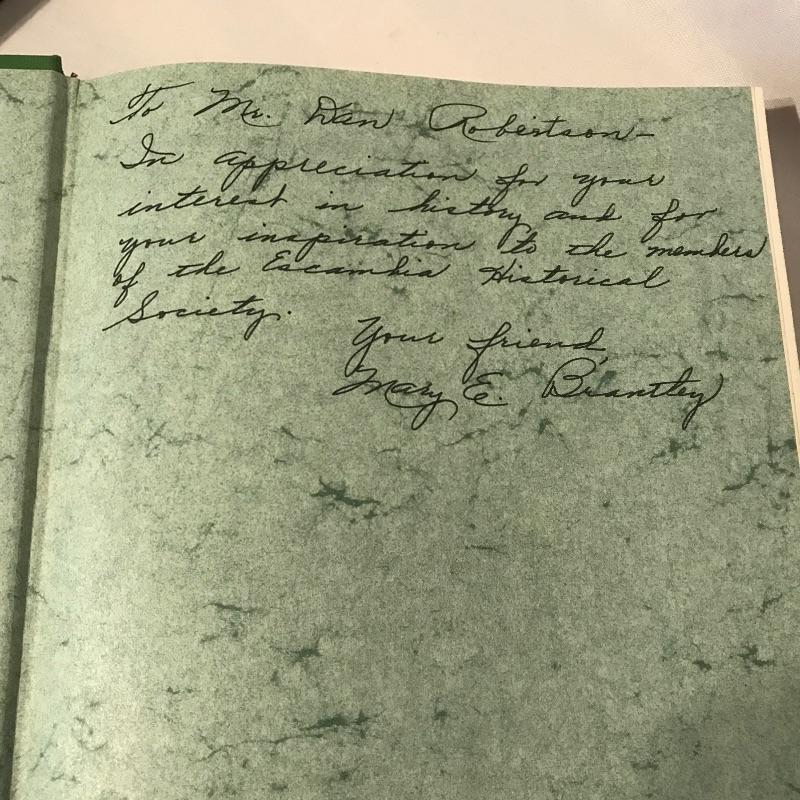 To Mr. Dan Robertson—
In appreciation for your
interest in history and for
your inspiration to the members
of the Escambia Historical
Society.
Your friend,
Mary E. Brantley